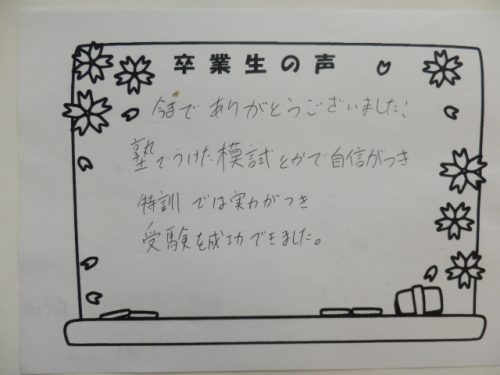 卒業生の声
今までありがとうございました!
塾でうけた模試とかで自信がつき
特訓では実力がつき
受験を成功できました。